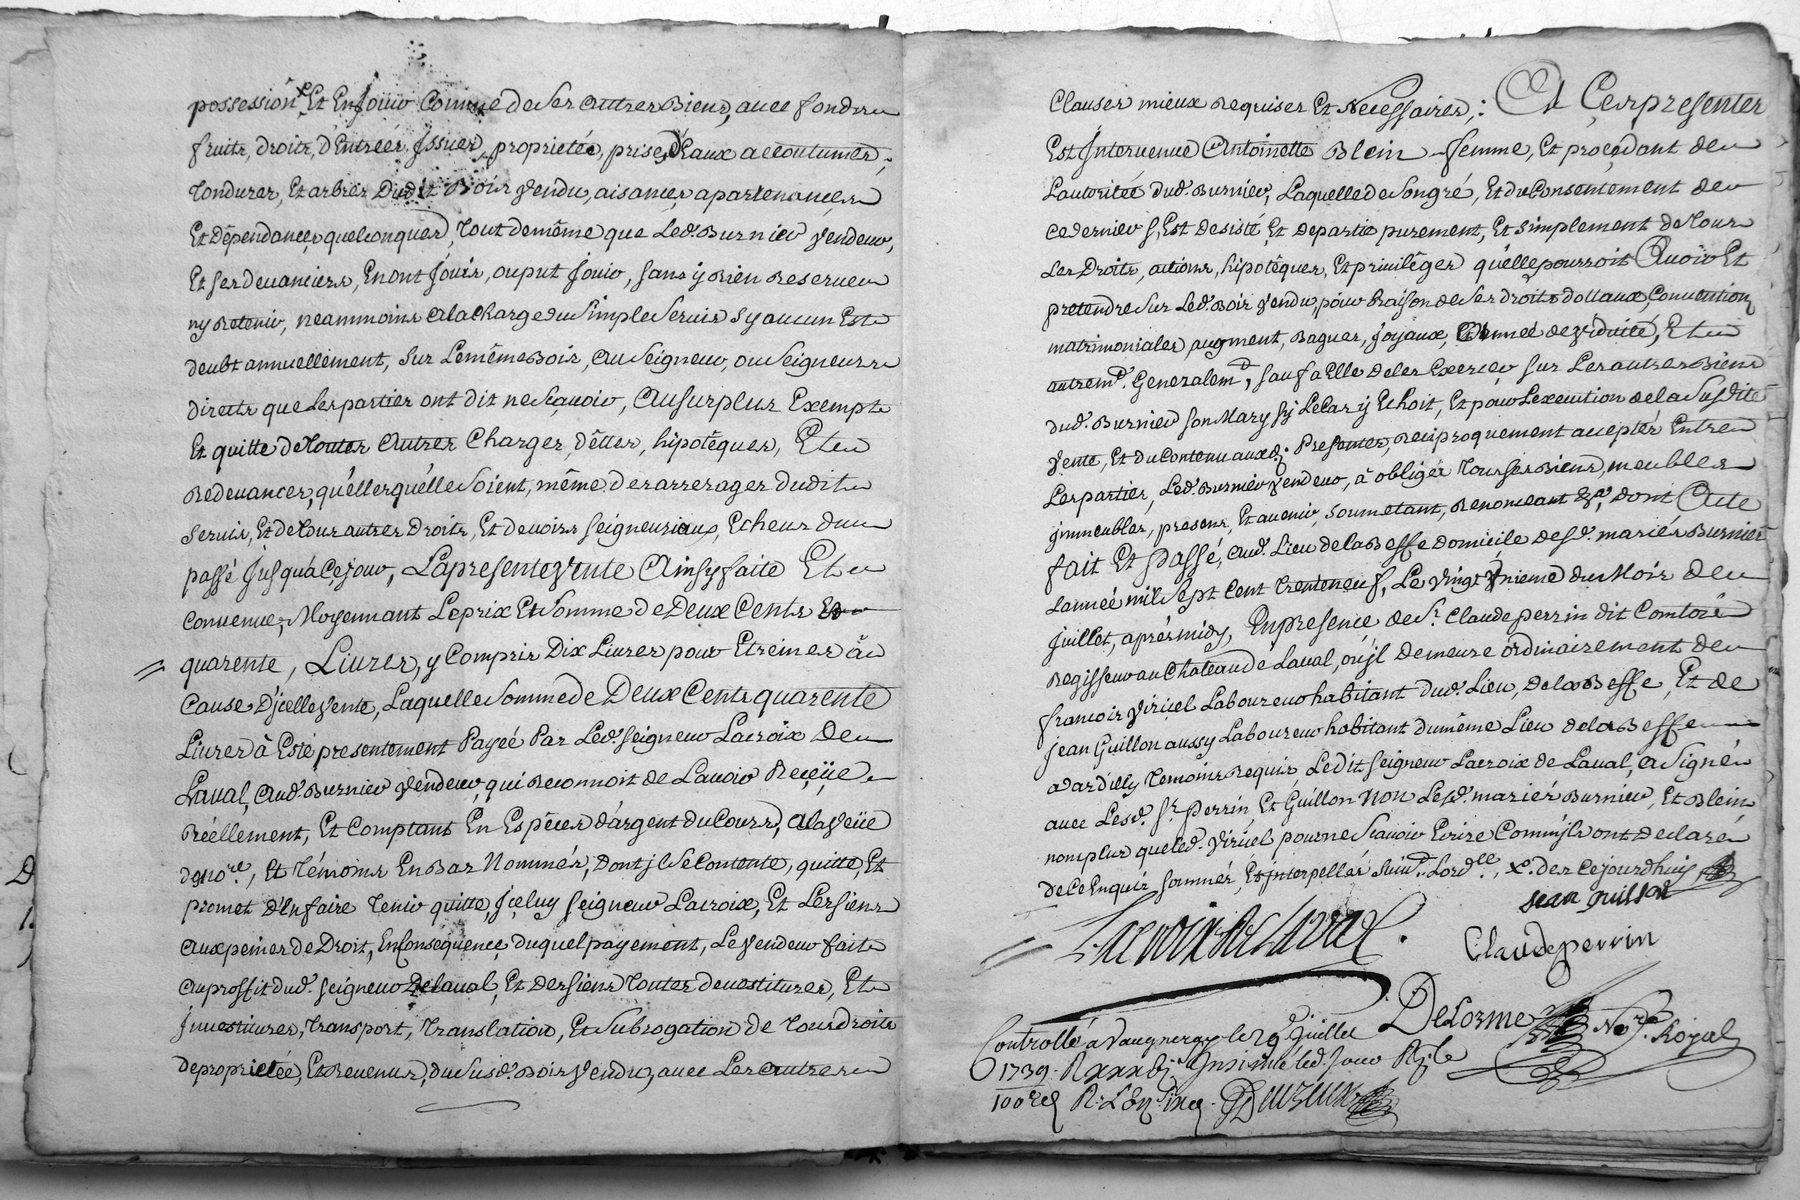 possession, x Et En Jouir Comme de Ses Autres Biens, avec fonds
fruits, droits, d'Entrées, Issues, proprietés, prise d'Eaux accoutumés,
Tondures, Et arbres Dudit Bois Vendu, aisances apartenances
Et Dépendances quelconques, Tout de même que Led. Burnier Vendeur,
Et ses devanciers, En ont Joüis, ou put Jouir, sans y Rien Reserver
ny Retenir, neammoins ala Charge du Simple Servis sy aucun Est
deubt annuellement, sur Le même Bois, au Seigneur, ou Seigneurs
directs que Les parties ont dit ne Sçavoir, Au surplus Exempt
Et quitte de Toutes Autres Charges, dêttes, hipotêques, Et
Redevances, qu'élles qu'élle Soient, même des arrerages dudit
Servis, Et de Tous autres Droits, Et devoirs seigneuriaux, Echeus du
passé Jusqu'a Ce jour, La presente Vente Ainsy faite Et
Convenue, Moyennant Le prix Et Somme de Deux Cents
quarente, Livres, y Compris Dix Livres pour Etreines à
Cause D'jcelle Vente, Laquelle Somme de Deux Cents quarente
Livres à Esté presentement Payée Par Led. seigneur Lacroix De
Laval, Aud. Burnier Vendeur, qui Reconnoit de L'avoir Reçeüe
Réellement, Et Comptant En Espéces d'argent du Cours, ala Veüe
de no.re, Et Témoins En Bas Nommés, Dont jl Se Contente, quitte, Et
promet d'En faire Tenir quitte, Jçeluy seigneur Lacroix, Et Les siens
Aux peines de Droit, En Consequence duquel payement, Le Vendeur fait
Au proffit dud. seigneur De Laval, Et des siens Toutes devestitures, Et
Jnvestitures, Transport, Translation, Et Subrogation de Tous droits
de proprietée, Et Revenus, du Susd. Bois Vendu, avec Les Autres
Clauses mieux Requises Et Necessaires; Et Ces presentes
Est Jntervenue Antoinette Blein femme, Et procedant de
L'autoritée dud. Burnier, Laquelle de Son gré, Et du Consentement de
ce dernier s'Est desisté, Et departie purement, Et simplement de Tous
Les Droits, actions, hipotêques, Et priviléges qu'élle pourroit Avoir Et
pretendre Sur Led. Bois Vendu, pour Raison de Ses droits dottaux, Convention
matrimoniales, augment, Bagues, Joyaux, Année de Viduité, Et
autrem.t Generalem.t, sauf a Elle de Les Exercer sur Les autres Biens
dud. Burnier son Mary sy Le Cas y Echoit, Et pour L'execution de la Susdite
Vente, Et du Contenu aux d. Presentes, Reciproquement accepter Entre
Les parties, Led. Burnier Vendeur, à obligér Tous ses Biens, meubles
jmmeubles, presens, Et avenir, soumetant, Renonceant &a, dont Acte
fait Et Passé, Aud. Lieu de la Beffe domicile desd. mariés Burnier
L'année mil Sept Cent Trente neuf, Le Vingt Vnieme du Mois de
Juillet, aprés midy, En presence de S.r Claude perrin dit Comtois
Regisseur au Château de Laval, oú jl demeure ordinairement de
françois Viricel Laboureur habitant dud. Lieu, de la Beffe, Et de
jean Guillon aussy Laboureur habitant du même Lieu de la Beffe
a dardilly Temoins Requis Ledit seigneur Lacroix de Laval, a Signé
avec Lesd. S.r perrin Et Guillon Non Lesd. mariés Burnier, Et Blein
non plus que led. Viricel pour ne Scavoir Ecrire Comm'jls ont declaré
de Ce Enquis sommés, Et jnterpellés Suiv.t Lord.ce, x Des ce jourdhuy
jean guillon
Lacroix de Laval.
Claude perrin
Delorme No.re Royal
Controllé a Vaugneray le 29 Juillet
1739. R Insinué led. jour R
100e d R.